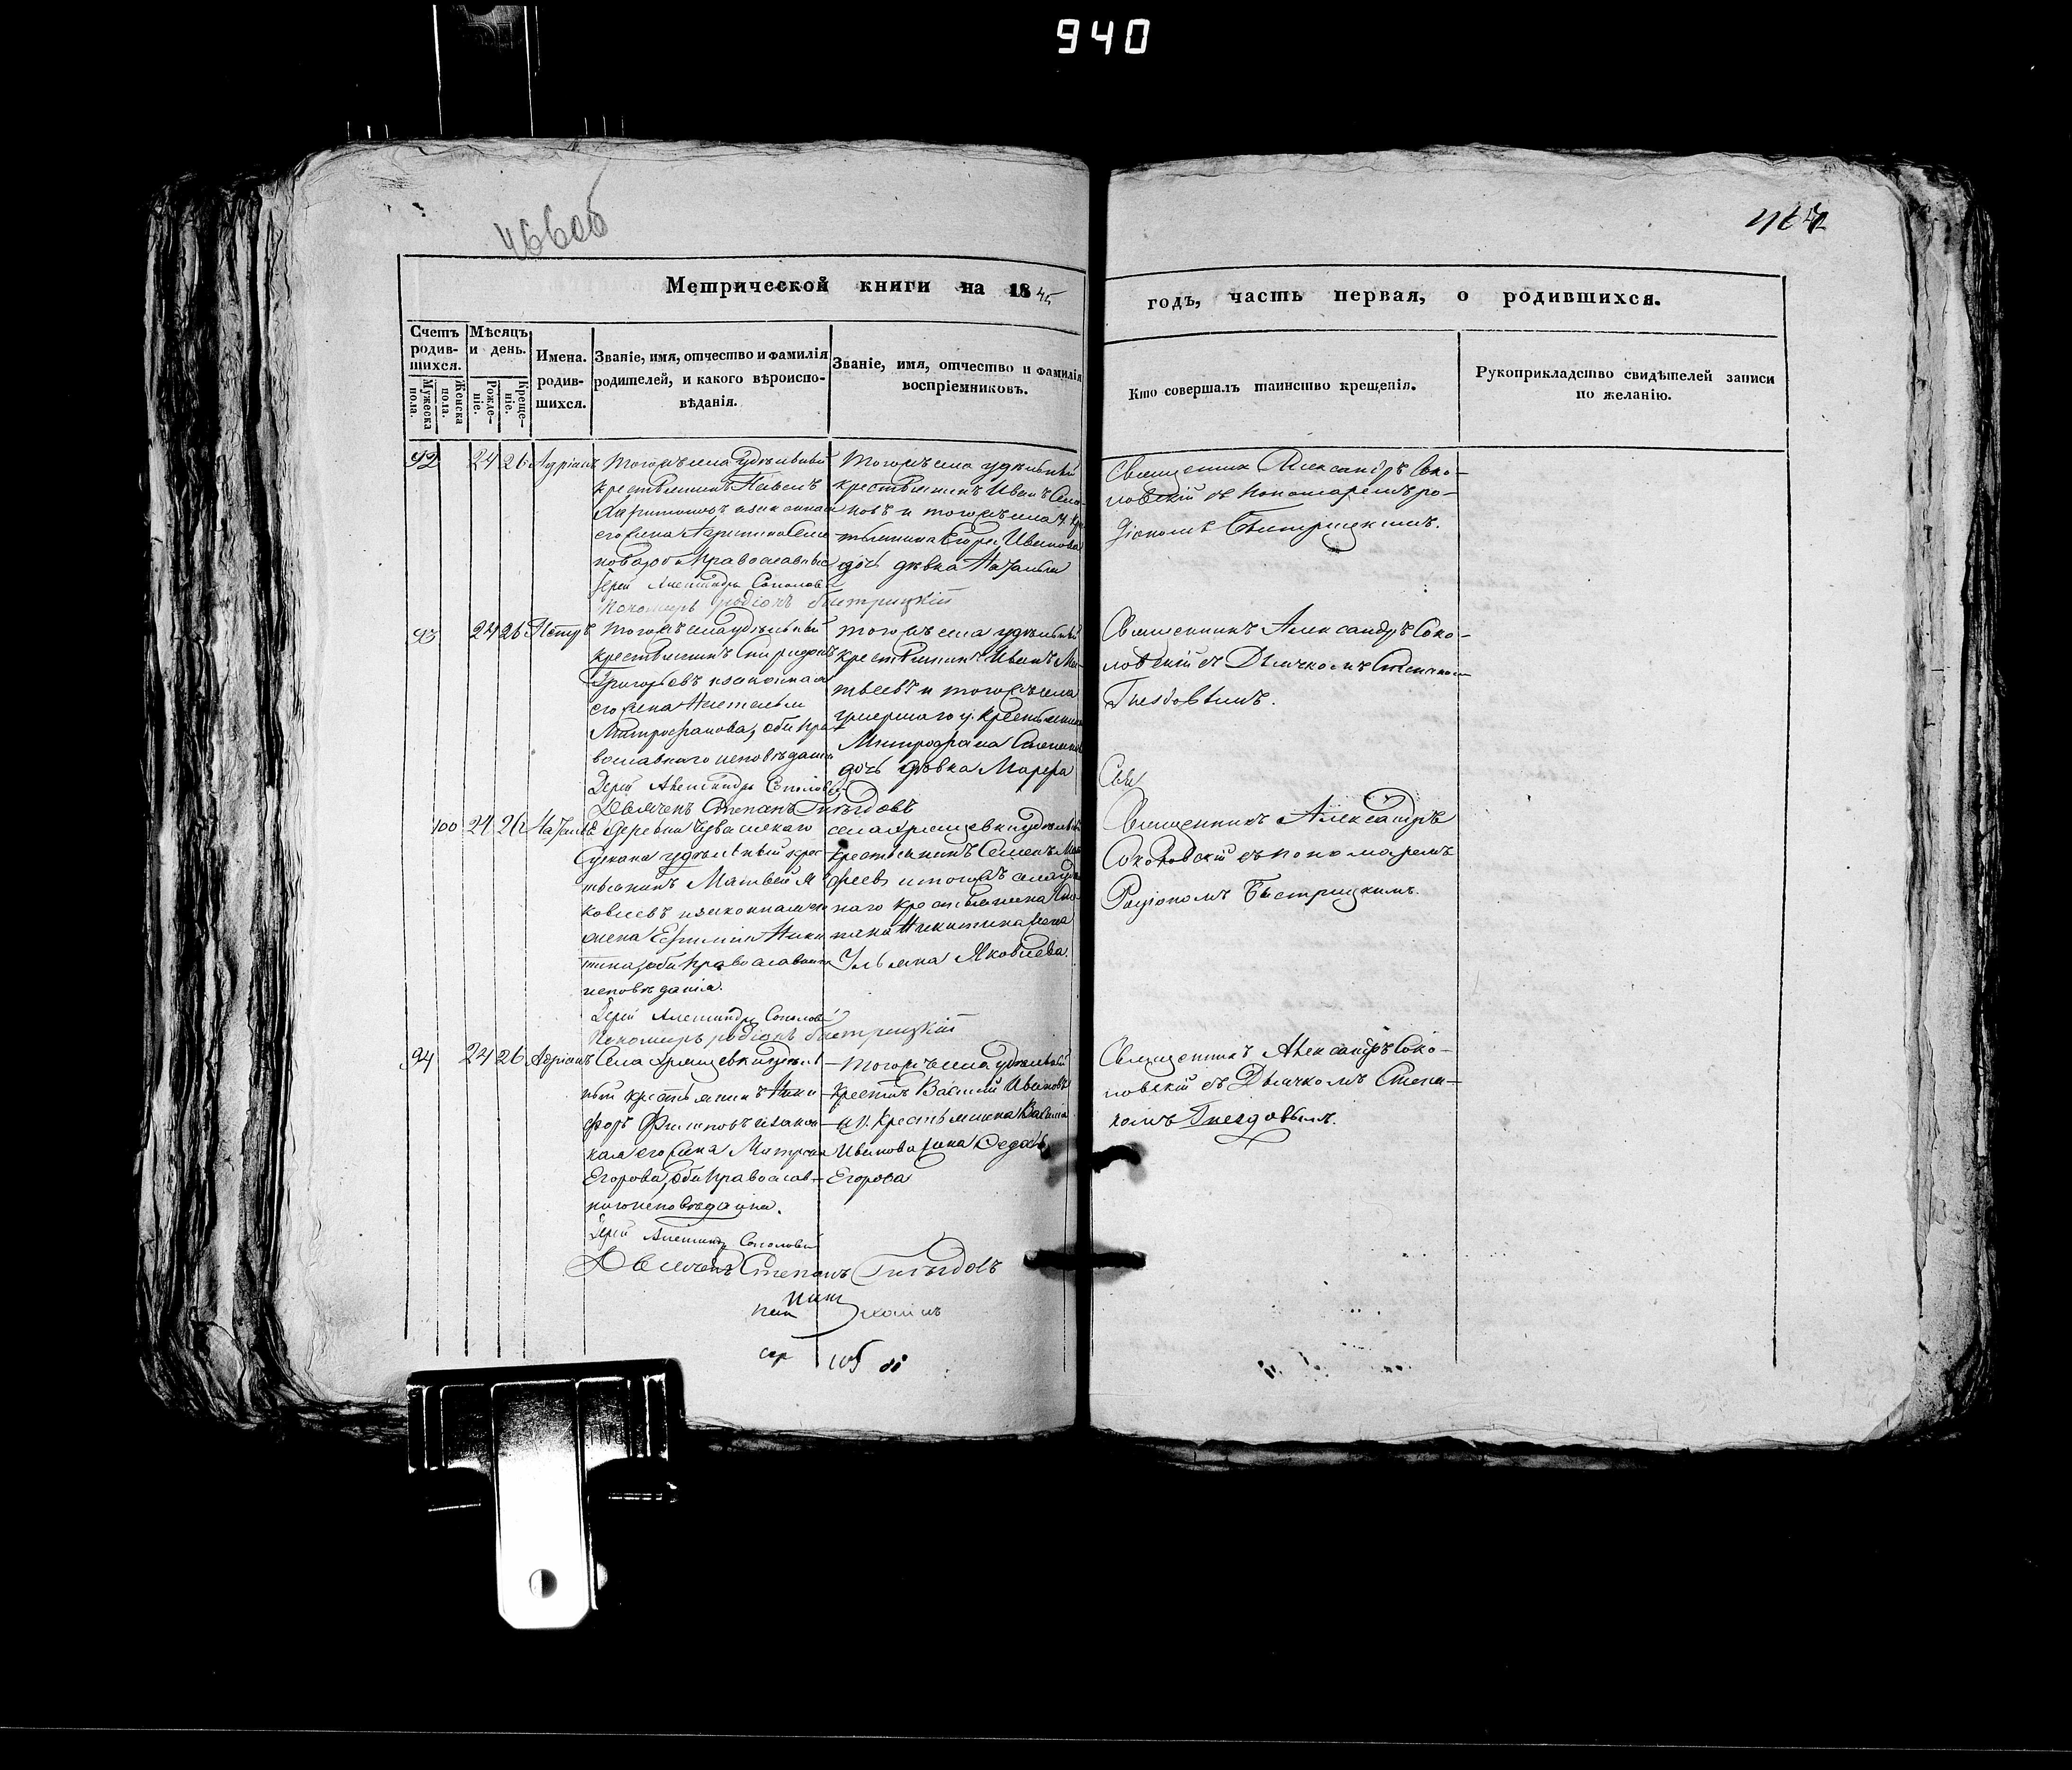 940
466об
467
Метрической книги на 1845
годъ, часть первая, о родившихся.
Счетъ родившихся.
Мужеска пола.
Женска пола.
Мѣсяцъ и день.
Рожденіе.
Крещеніе.
Имена. родившихся.
Званіе, имя, отчество и фамилія
родителей, и какого вѣроиспо-
вѣданія.
Званіе, имя, отчество и фамилія
воспріемниковъ.
Кто совершалъ таинство крещенія.
Рукоприкладство свидѣтелей записи
по желанію.
92 24 26 Адріанъ
Тогожъ села удѣльный
крестьянинъ Павелъ
Харитоновъ и законная
его жена
оба православные
Іерей Александръ Соколовскій
Пономарь Родіонъ Быстрицкій
Тогожъ села удѣльный
крестьянинъ Иванъ
новъ и тогожъ села у. кре
тьянина Егора Иванова
дочь дѣвка Наталья
Священникъ Александръ Соко-
ловскій съ пономаремъ Ро-
діономъ Быстрицкимъ.
93 24 26 Петръ
Тогожъ села удѣльный
крестьянинъ Спиридонъ
Григорьевъ и законная
его жена Наталья
Митрофанова, оба пра
вославного исповѣданія
Іерей Александръ Соколовскій
Дьячекъ Степанъ Гнѣздовъ
тогожъ села удѣльный
крестьянинъ Иванъ Ма-
твеевъ и тогожъ села
умершаго у. крестьянина
Митрофана Степанова
дочь дѣвка Марфа
Священникъ Александръ Соко-
ловскій съ Дьячкомъ Степаномъ
Гнездовымъ.
Свя
100 24 26 Наталья
Деревни Чувашскаго
Сускана удѣльный крес
тьянинъ Матвей Я
ковлевъ и законная его
жена Ефимия Ники
тина, оба православнаго
исповѣданія.
Іерей Александръ Соколовскій
Пономарь Родіонъ Быстрицкій
села Хрящевки удѣльный
крестьянинъ Семенъ Мат
феевъ и тогожъ села удѣль
наго крестьянина Сте
пана Никитина жена
Ульяна Яковлева.
Священникъ Александръ
Соколовскій съ пономаремъ
Родіономъ Быстрицкимъ.
94 24 26 Адріанъ
Села Хрящевки удѣль
ный крестьянинъ Ники
форъ Филиповъ и закон
ная его жена Матрена
Егорова, оба православ-
наго исповѣданія.
Іерей Александръ Соколовскій
Дьячекъ Степанъ Гнѣздовъ
Тогожъ села удѣльный
крестьянъ Василій Ивановъ
и у. крестьянина Василія
Иванова жена Федосья
Егорова
Священникъ Александръ Соко-
ловскій съ Дьячкомъ Степа-
номъ Гнездовымъ.